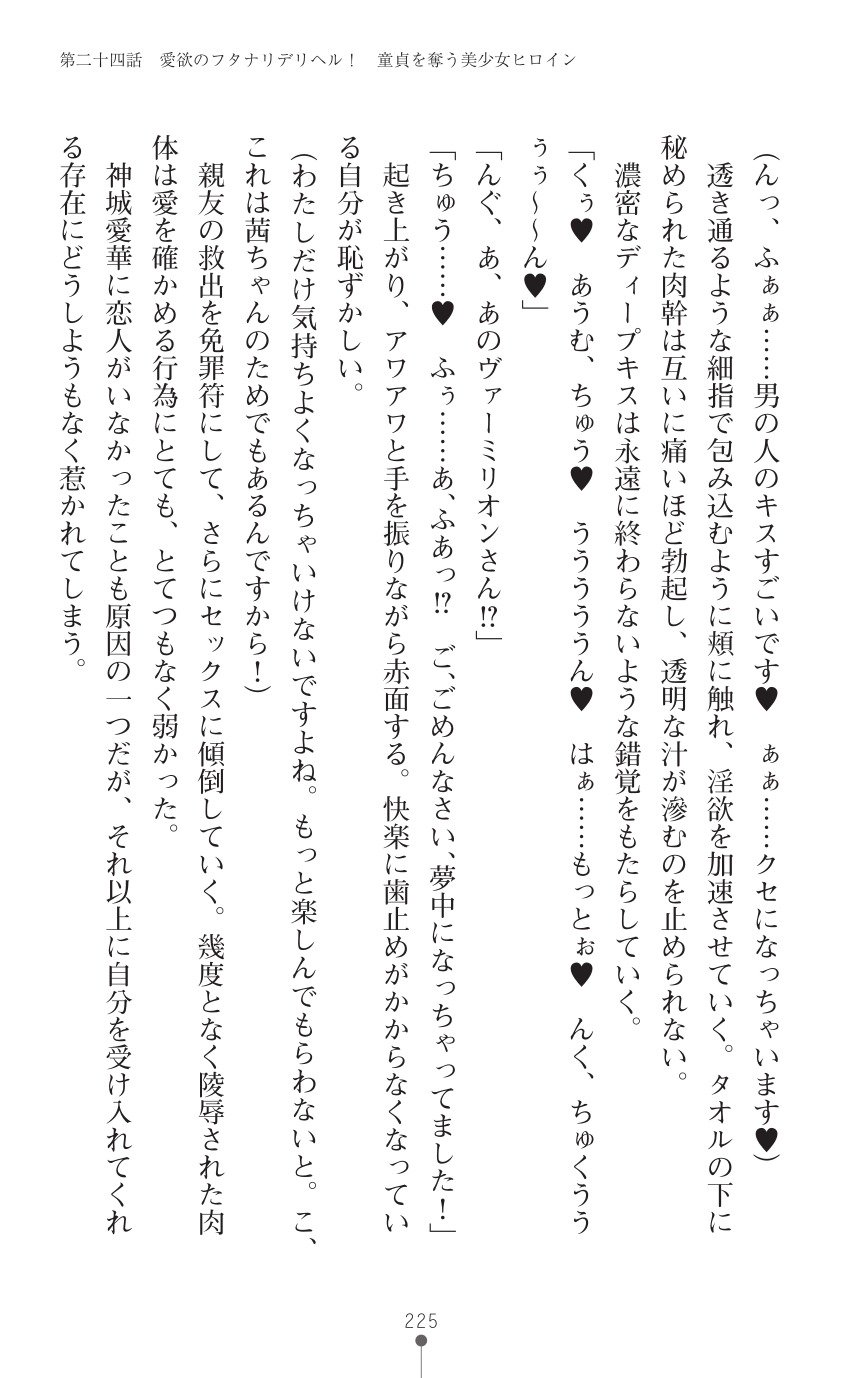 第二十四話　愛欲のフタナリデリヘル！　童貞を奪う美少女ヒロイン
（んっ、ふぁぁ……男の人のキスすごいです♥　ぁぁ……クセになっちゃいます♥）
　透き通るような細指で包み込むように頬に触れ、淫欲を加速させていく。タオルの下に
秘められた肉幹は互いに痛いほど勃起し、透明な汁が滲むのを止められない。
　濃密なディープキスは永遠に終わらないような錯覚をもたらしていく。
「くぅ♥　あうむ、ちゅう♥　ううううん♥　はぁ……もっとぉ♥　んく、ちゅくうう
ぅぅ～～ん♥」
「んぐ、あ、あのヴァーミリオンさん!?」
「ちゅう……♥　ふぅ……あ、ふあっ!?　ご、ごめんなさい、夢中になっちゃってました！」
　起き上がり、アワアワと手を振りながら赤面する。快楽に歯止めがかからなくなってい
る自分が恥ずかしい。
（わたしだけ気持ちよくなっちゃいけないですよね。もっと楽しんでもらわないと。こ、
これは茜ちゃんのためでもあるんですから！）
　親友の救出を免罪符にして、さらにセックスに傾倒していく。幾度となく陵辱された肉
体は愛を確かめる行為にとても、とてつもなく弱かった。
　神城愛華に恋人がいなかったことも原因の一つだが、それ以上に自分を受け入れてくれ
る存在にどうしようもなく惹かれてしまう。
225